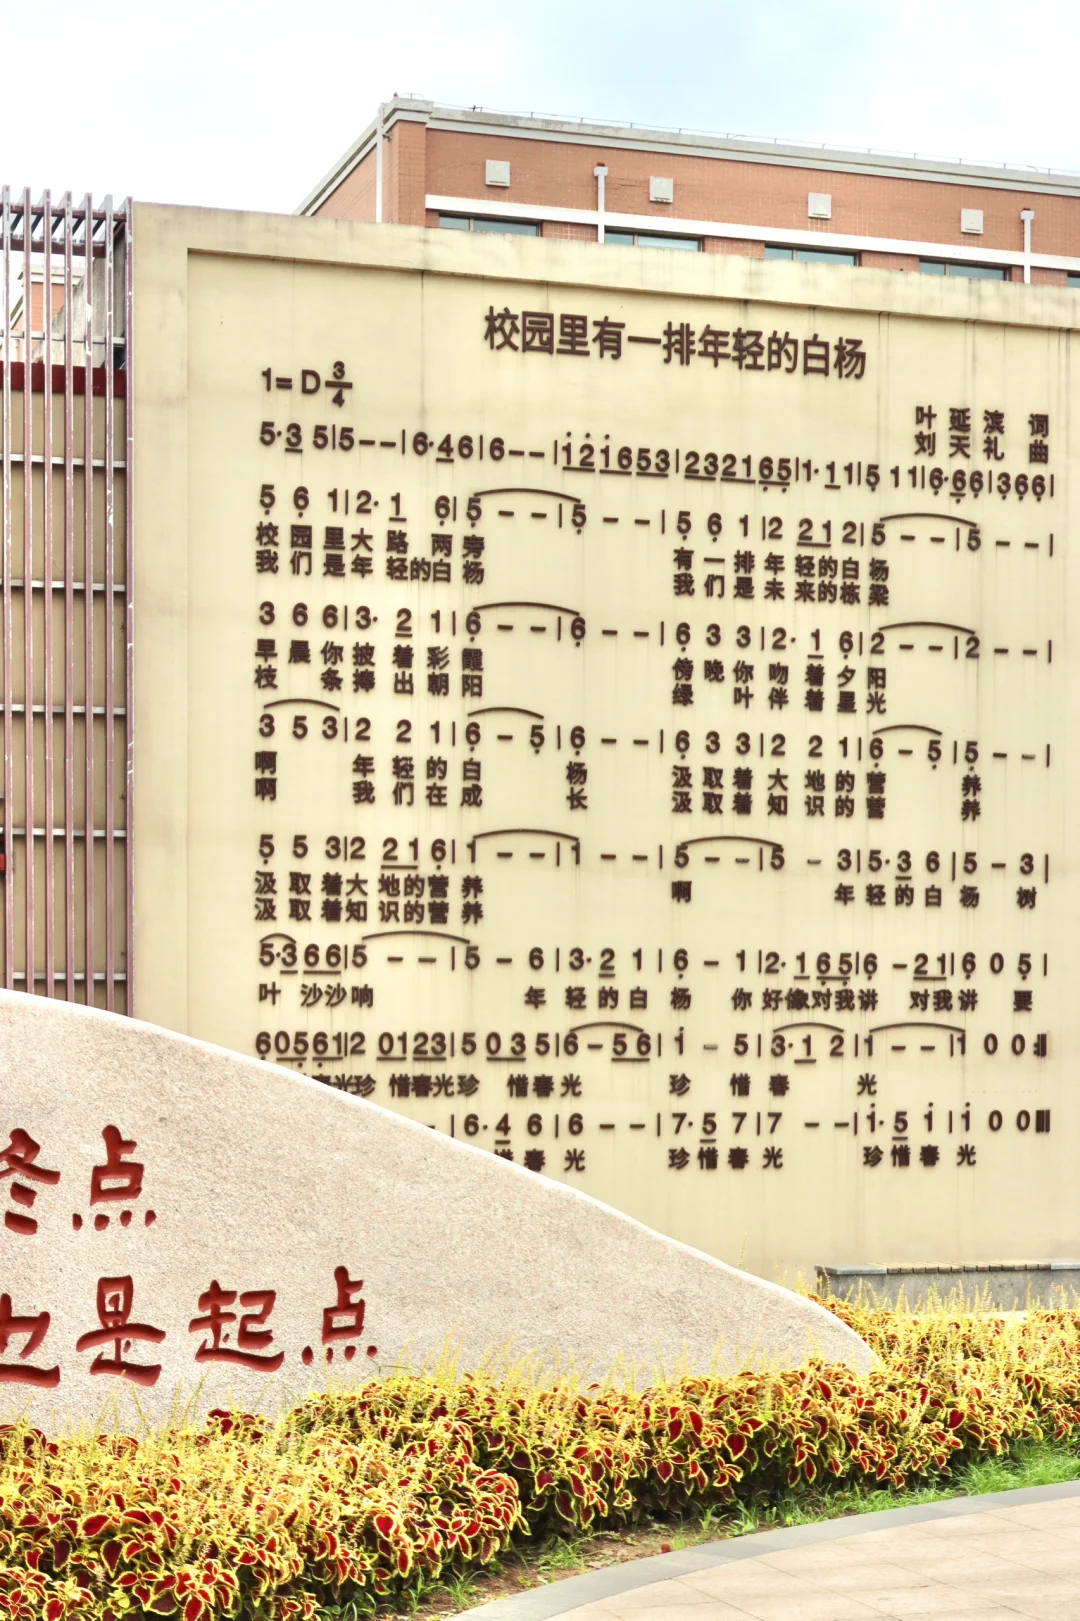 校园里有一排年轻的白杨
1=D 3/4
叶延滨 词
刘天礼 曲
5·3 5|5--|6·46|6--|121653|232165|1·11|5 11|6·66|366|
5 6 1|2·1 6|5--|5--|5 6 1|2 212|5--|5--|
校园里大路两旁 有一排年轻的白杨
我们是年轻的白杨 我们是未来的栋梁
3 6 6|3·2 1|6--|6--|6 3 3|2·1 6|2--|2--|
早晨你披着彩霞 傍晚你吻着夕阳
枝条捧出朝阳 绿叶伴着星光
3 5 3|2 2 1|6-5|6--|6 3 3|2 2 1|6-5|5--|
啊 年轻的白杨 汲取着大地的营养
啊 我们在成长 汲取着知识的营养
5 5 3|2 216|1--|1--|5--|5-3|5·3 6|5-3|
汲取着大地的营养 啊 年轻的白杨树
汲取着知识的营养
5·3 66|5--|5-6|3·2 1|6-1|2·165|6-21|6 0 5|
叶沙沙响 年轻的白杨 你好像对我讲 对我讲 要
60561|2 0123|5 035|6-56|1-5|3·1 2|1--|1 0 0:||
春光珍惜春光珍惜春光 珍惜春光
-|6·4 6|6--|7·5 7|7--|1·5 1|1 0 0||
惜春光 珍惜春光 珍惜春光
终点
也是起点